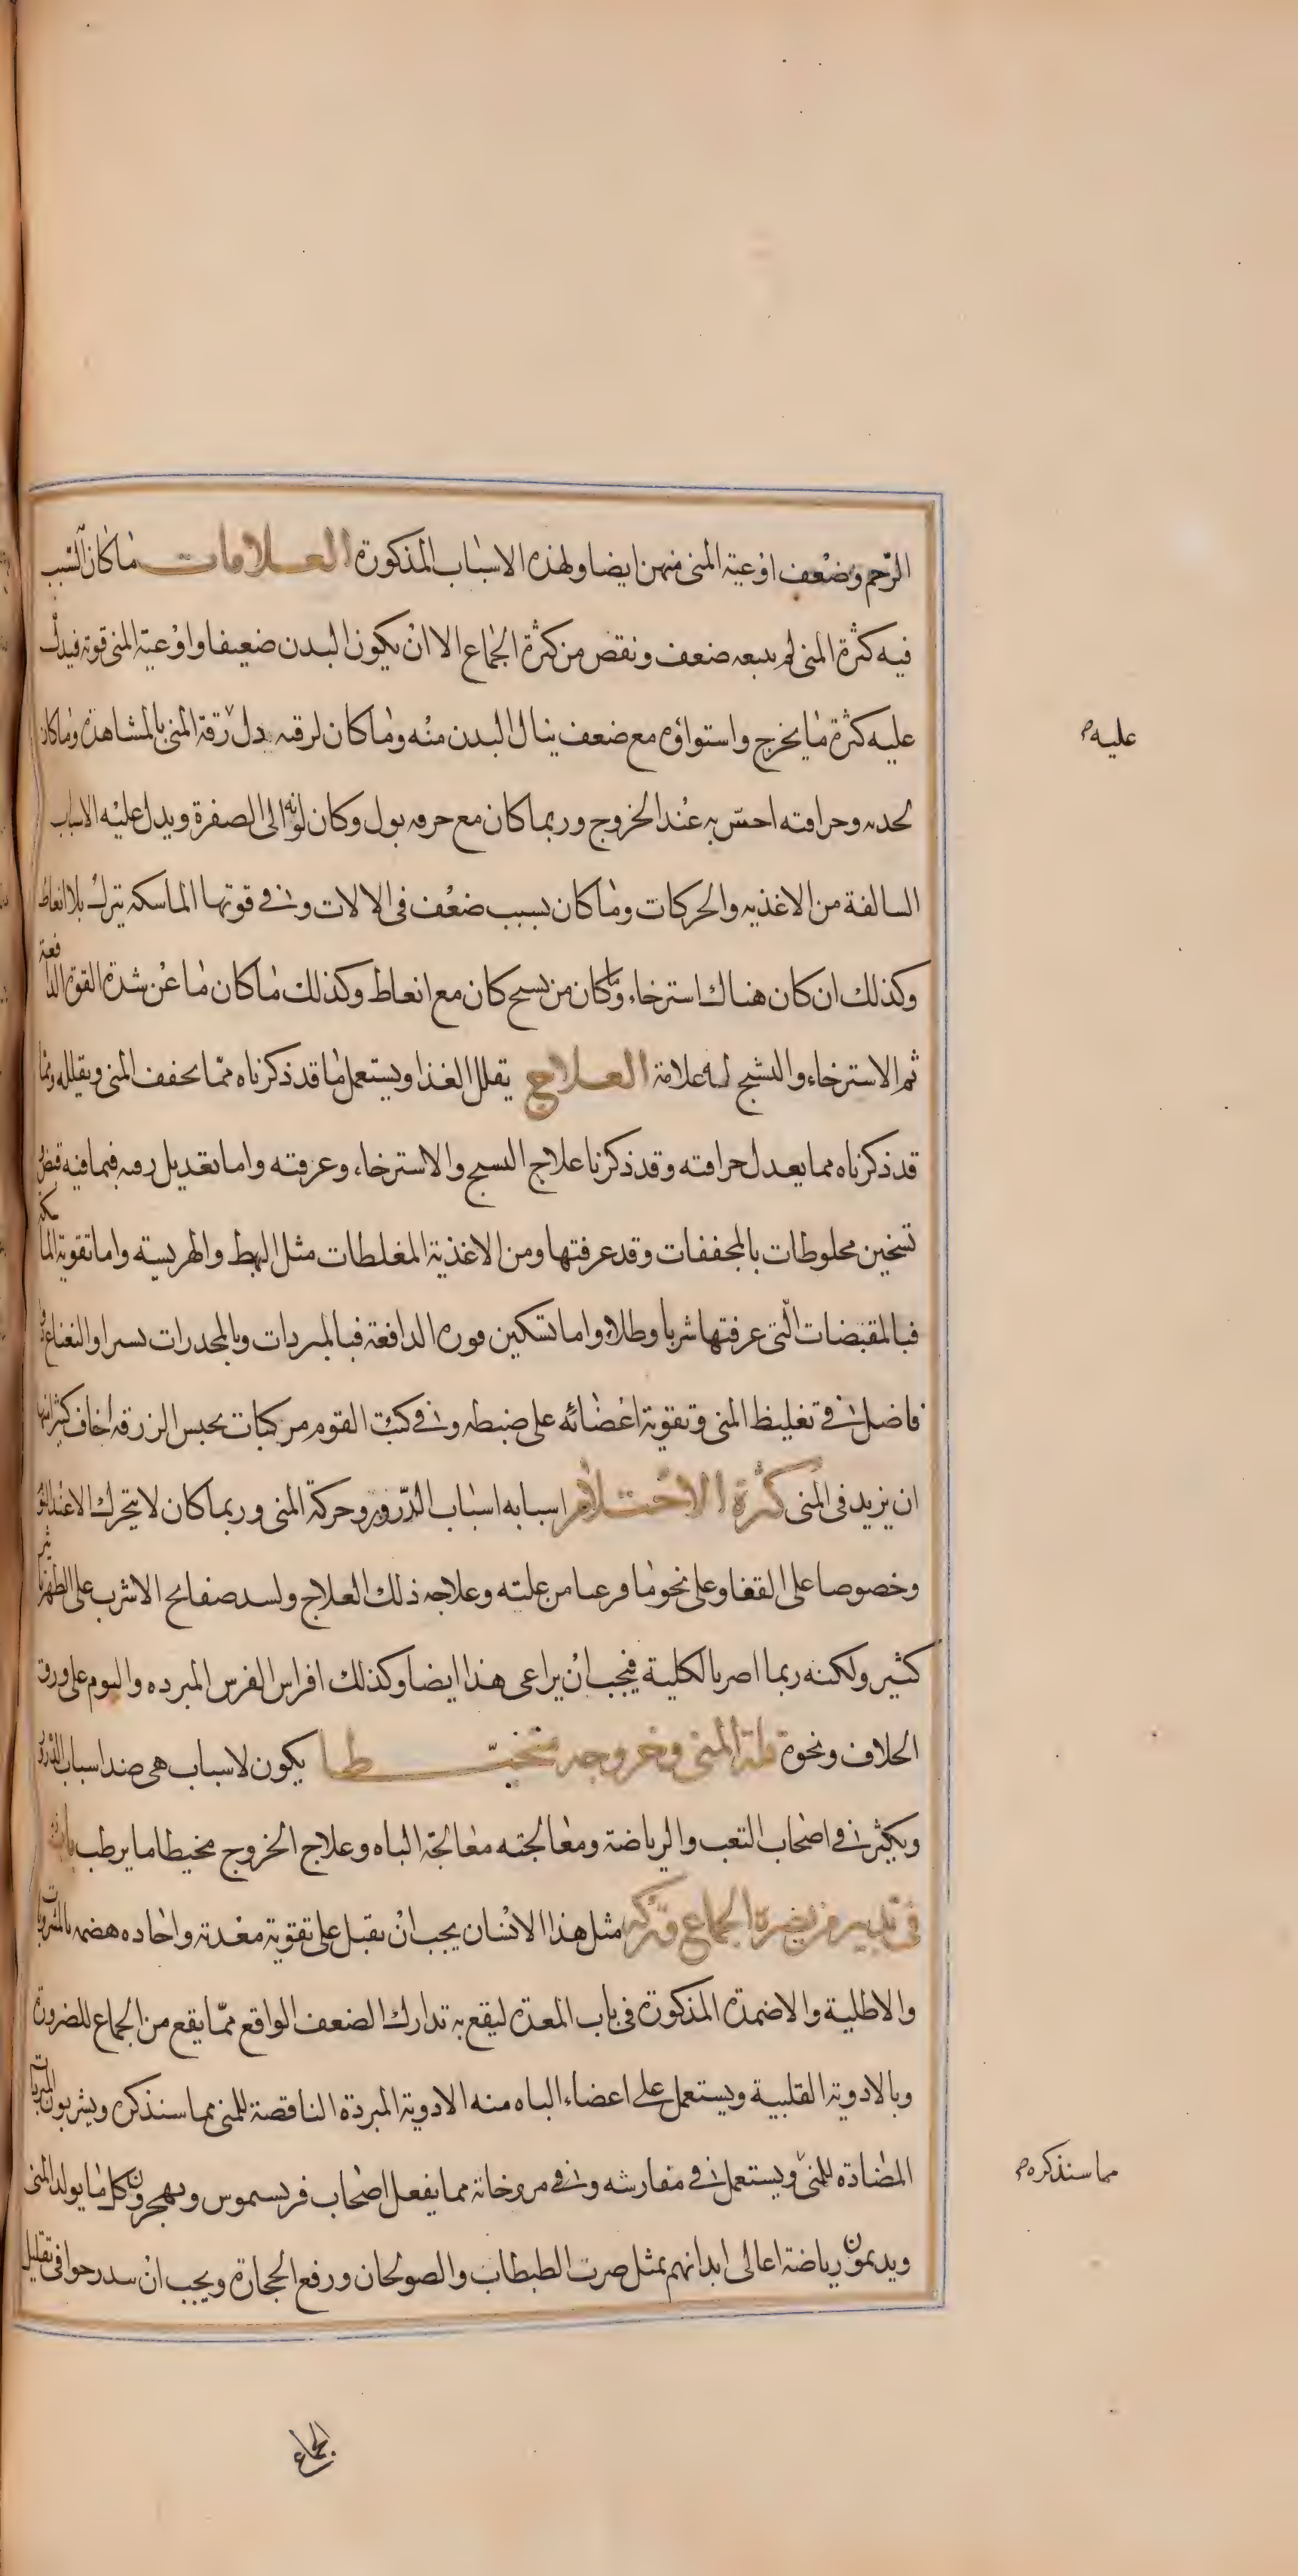 الرحم وضعف اوعية المنى منهن ايضا ولهذه الاسباب المذكورة العلامات ما كان السبب
فيه كثرة المنى لم يتبعه ضعف ونقص من كثرة الجماع الا ان يكون البدن ضعيفا واوعية المنى قوية فيدل
عليه كثرة ما يخرج واستواؤه مع ضعف ينال البدن منه وما كان لرقته دل رقة المنى بالمشاهدة وما كان
عليه
لحدته وحرافته احس به عند الخروج وربما كان مع حرقه بول وكان لونه الى الصفرة ويدل عليه الاسباب
السالفة من الاغذيه والحركات وما كان بسبب ضعف فى الالات وفى قوتها الماسكه يترك بلا انعاظ
وكذلك ان كان هناك استرخاء وما كان من تشنج كان مع انعاظ وكذلك ما كان ما عن شدة القوة الدافعة
ثم الاسترخاء والتشنج له علامة العلاج يقلل الغذا ويستعمل ما قد ذكرناه مما يجفف المنى ويقلله ومما
قد ذكرناه مما يعدل حرافته وقد ذكرنا علاج التشنج والاسترخاء وعرفته واما تعديل رقته فبما فيه قبض و
تسخين مخلوطات بالمجففات وقد عرفتها ومن الاغذية المغلظات مثل البهط والهريسه واما تقوية الماسكة
فبالمقبضات التى عرفتها شربا وطلاء واما تسكين قوة الدافعة فبالمبردات وبالمخدرات يسيرا والنعناع دواء
فاضل فى تغليظ المنى وتقوية اعضائه على ضبطه وفى كتب القوم مركبات يحبس الزرقه اخاف كثيرا منها
ان يزيد فى المنى كثرة الاحتلام اسبابه اسباب الدرور وحركة المنى وربما كان لا يتحرك الا عند النوم
وخصوصا على القفا وعلى نحو ما فرغنا من علته وعلاجه ذلك العلاج ولشد صفايح الاسرب على الظهر تاثير
كثير ولكنه ربما اضر بالكلية فيجب ان يراعى هذا ايضا وكذلك افراس الفرس المبرده والنوم على ورق
الخلاف ونحوه قلة المنى وخروجه متخيطا يكون لاسباب هى ضد اسباب الدرور
ويكثر فى اصحاب التعب والرياضة ومعالجته معالجة الباه وعلاج الخروج مخيطا ما يرطب
فى تدبير من يضره الجماع وتركه مثل هذا الانسان يجب ان يقبل على تقوية معدته واجاده هضمه بالمشروبات
والاطلية والاضمدة المذكورة فى باب المعدة ليقع به تدارك الضعف الواقع مما يقع من الجماع للضرورة
وبالادوية القلبية ويستعمل على اعضاء الباه منه الادوية المبردة الناقصة للمنى مما سنذكره ويشربون المشروبات
المضادة للمنى ويستعمل فى مفارشه وفى مروخاته مما يفعل اصحاب فريسموس ويهجرون كل ما يولد المنى
مما سنذكره
ويديمون رياضة اعالى ابدانهم بمثل ضرب الطبطاب والصولجان ورفع الحجارة ويجب ان يتدرجوا فى تقليل
الجماع